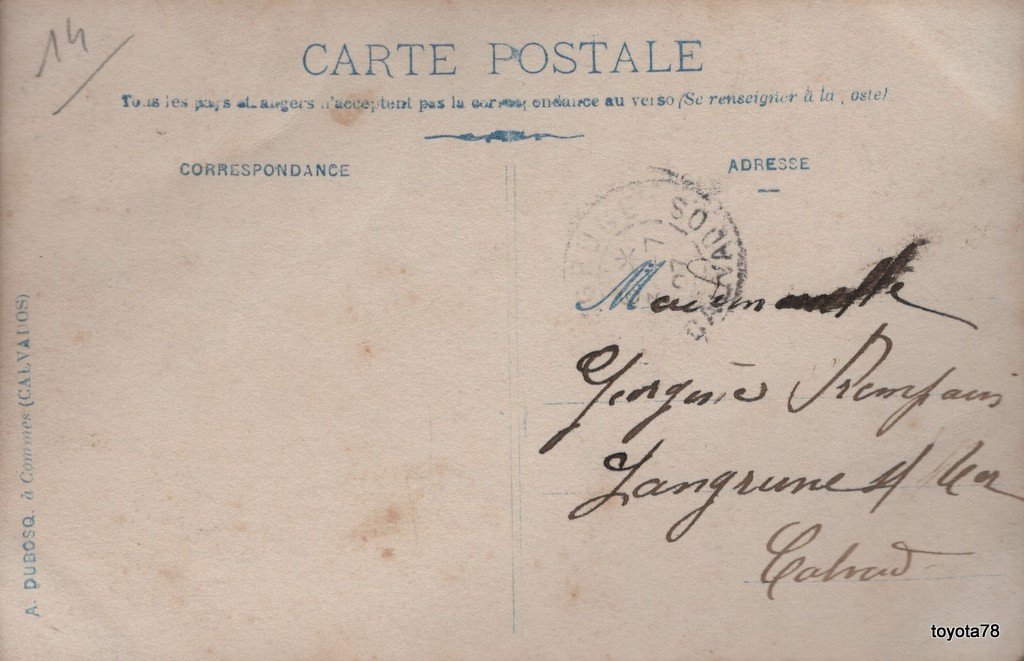 14
CARTE POSTALE
Tous les pays étrangers n'acceptent pas la correspondance au verso (Se renseigner à la poste).
CORRESPONDANCE
ADRESSE
CALVADOS
Mademoiselle
Georgine
Langrune s/ Mer
Calvad
A. DUBOSQ. à Commes (CALVADOS)
toyota78